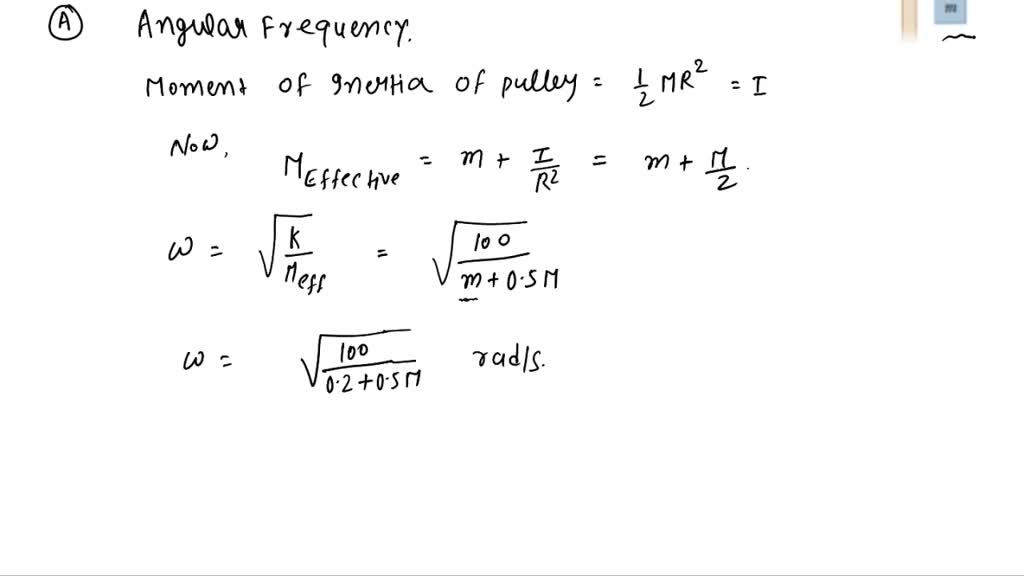 A Angular Frequency.
m
Moment of Inertia of pulley = 1/2 MR² = I
Now,
M_Effective = m + I/R² = m + M/2.
ω = √(K/M_eff) = √(100/(m + 0.5M))
ω = √(100/(0.2+0.5M)) rad/s.